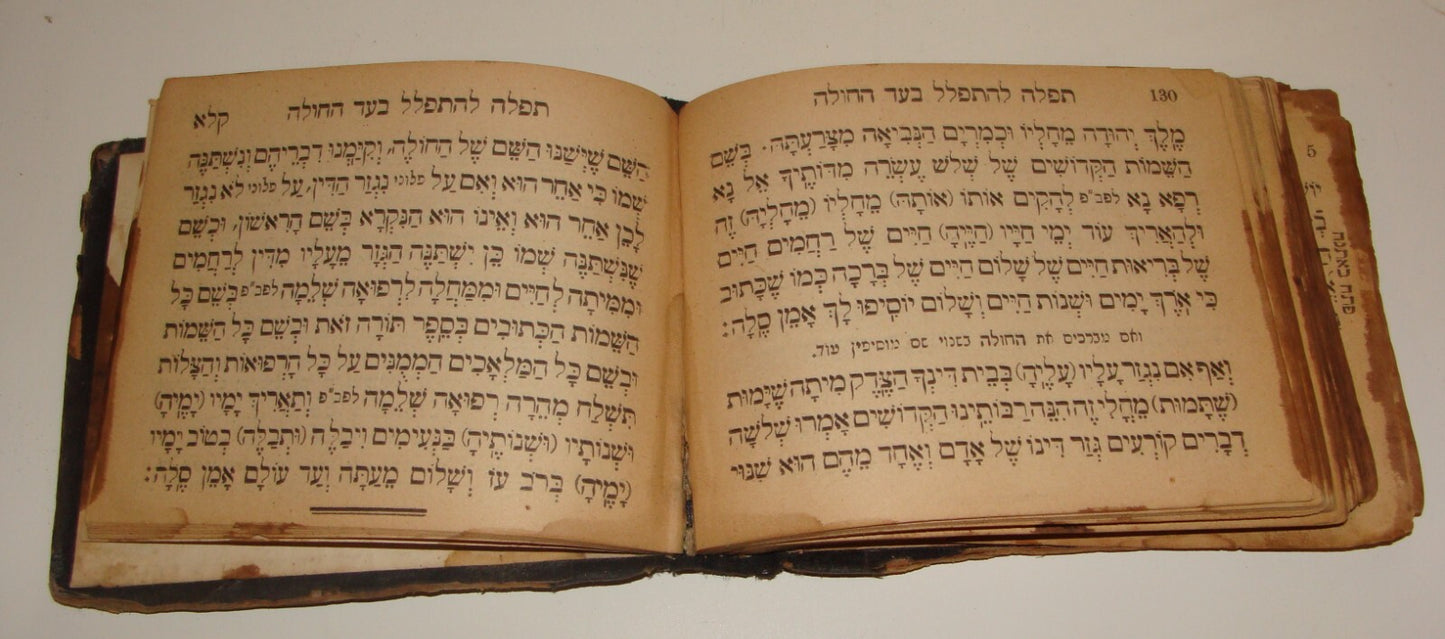 130 תפלה להתפלל בעד החולה
מֶלֶךְ יְהוּדָה מֵחָלְיוֹ וּכְמִרְיָם הַנְּבִיאָה מִצָּרַעְתָּהּ. בְּשֵׁם
הַשֵּׁמוֹת הַקְּדוֹשִׁים שֶׁל שְׁלֹשׁ עֶשְׂרֵה מִדּוֹתֶיךָ אֵל נָא
רְפָא נָא לפב״פ לְהָקִים אוֹתוֹ (אוֹתָהּ) מֵחָלְיוֹ (מֵחָלְיָהּ) זֶה
וּלְהַאֲרִיךְ עוֹד יְמֵי חַיָּיו (חַיֶּיהָ) חַיִּים שֶׁל רַחֲמִים חַיִּים
שֶׁל בְּרִיאוּת חַיִּים שֶׁל שָׁלוֹם חַיִּים שֶׁל בְּרָכָה כְּמוֹ שֶׁכָּתוּב
כִּי אֹרֶךְ יָמִים וּשְׁנוֹת חַיִּים וְשָׁלוֹם יוֹסִיפוּ לָךְ אָמֵן סֶלָה:
ואם מברכים את החולה בשנוי שם מוסיפין עוד.
וְאַף אִם נִגְזַר עָלָיו (עָלֶיהָ) בְּבֵית דִּינְךָ הַצֶּדֶק מִיתָה שֶׁיָּמוּת
(שֶׁתָּמוּת) מֵחֳלִי זֶה הִנֵּה רַבּוֹתֵינוּ הַקְּדוֹשִׁים אָמְרוּ שְׁלֹשָׁה
דְבָרִים קוֹרְעִים גְּזַר דִּינוֹ שֶׁל אָדָם וְאֶחָד מֵהֶם הוּא שִׁנּוּי
תפלה להתפלל בעד החולה קלא
הַשֵּׁם שֶׁיְּשַׁנּוּ הַשֵּׁם שֶׁל הַחוֹלֶה, וְקִיַּמְנוּ דִבְרֵיהֶם וְנִשְׁתַּנָּה
שְׁמוֹ כִּי אַחֵר הוּא וְאִם עַל פלוני נִגְזַר הַדִּין, עַל פלוני לֹא נִגְזַר
לָכֵן אַחֵר הוּא וְאֵינוֹ הוּא הַנִּקְרָא בְּשֵׁם הָרִאשׁוֹן, וּכְשֵׁם
שֶׁנִּשְׁתַּנָּה שְׁמוֹ כֵּן יִשְׁתַּנֶּה הַגְּזַר מֵעָלָיו מִדִּין לְרַחֲמִים
וּמִמִּיתָה לְחַיִּים וּמִמַּחֲלָה לִרְפוּאָה שְׁלֵמָה לפב״פ בְּשֵׁם כָּל
הַשֵּׁמוֹת הַכְּתוּבִים בְּסֵפֶר תּוֹרָה זֹאת וּבְשֵׁם כָּל הַשֵּׁמוֹת
וּבְשֵׁם כָּל הַמַּלְאָכִים הַמְמֻנִּים עַל כָּל הָרְפוּאוֹת וְהַצָּלוֹת
תִּשְׁלַח מְהֵרָה רְפוּאָה שְׁלֵמָה לפב״פ וְתַאֲרִיךְ יָמָיו (יָמֶיהָ)
וּשְׁנוֹתָיו (וּשְׁנוֹתֶיהָ) בַּנְּעִימִים וִיבַלֶּה (וּתְבַלֶּה) בְּטוֹב יָמָיו
(יָמֶיהָ) בְּרֹב עֹז וְשָׁלוֹם מֵעַתָּה וְעַד עוֹלָם אָמֵן סֶלָה:
5